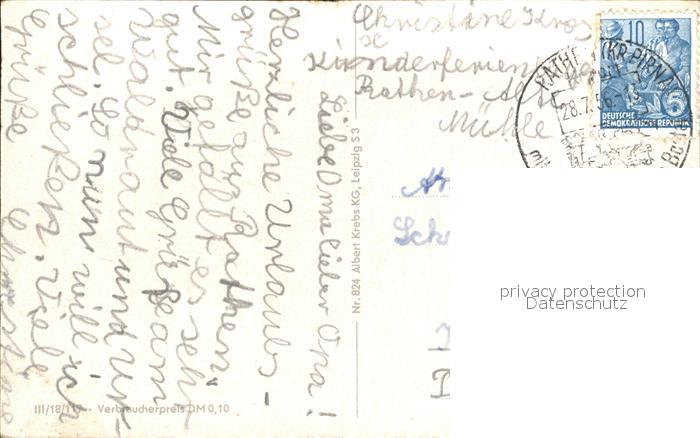 Christine Kros
se
Kinderferien
Rathen-Alte
Mühle
Liebe Oma lieber Opa!
Herzliche Urlaubs-
grüße aus Rathen
Mir gefällt es sehr
gut. Viele Grüße an
Waltraut und Ur-
sel. So nun will ich
schließen. Viele
Grüße Christine
Nr. 824 Albert Krebs KG, Leipzig S 3
III/18/117 · Verbraucherpreis DM 0,10
10
DEUTSCHE
DEMOKRATISCHE REPUBLIK
RATHEN (KR. PIRNA)
28.7.56
privacy protection
Datenschutz